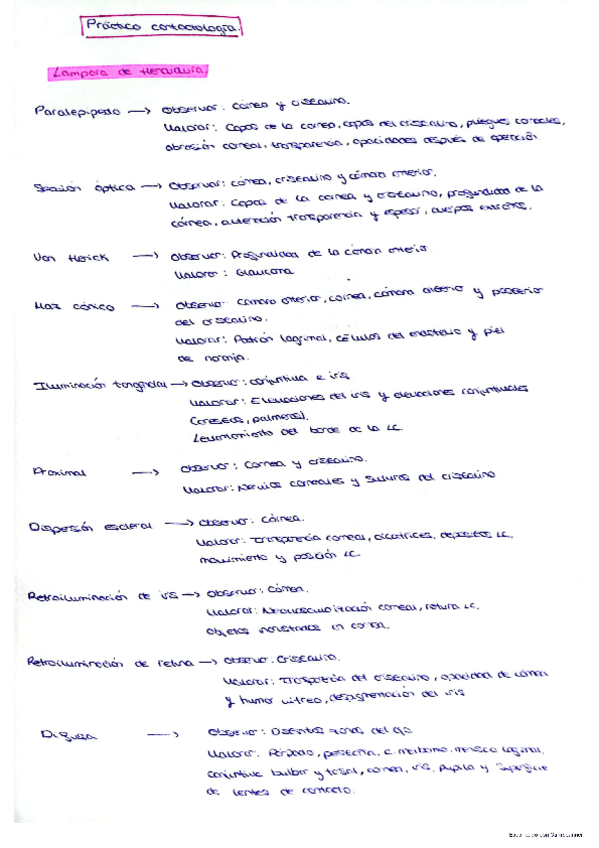 Práctica contactología.
Lámpara de Hendidura.
Paralepípedo → Observar: Córnea y cristalino.
Valorar: Capas de la córnea, capas del cristalino, pliegues corneales,
abrasión corneal, transparencia, opacidades después de operación
Sección óptica → Observar: córnea, cristalino y cámara anterior.
Valorar: Capas de la córnea y cristalino, profundidad de la
córnea, transparencia y espesor, cuerpos extraños.
Van Herick → Observar: Profundidad de la cámara anterior
Valorar: Glaucoma
Haz cónico → Observar: Cámara anterior, córnea, cámara anterior y posterior
del cristalino.
Valorar: Patrón lagrimal, células del endotelio y piel
de naranja.
Iluminación tangencial → Observar: conjuntiva e iris
Valorar: Elevaciones del iris y elevaciones conjuntivales
Levantamiento del borde de la LC.
Proximal → Observar: Córnea y cristalino.
Valorar: Nervios corneales y suturas del cristalino
Dispersión escleral → Observar: Córnea.
Valorar: Transparencia corneal, cicatrices, depósitos LC,
movimiento y posición LC
Retroiluminación de iris → Observar: Córnea.
Valorar: Neovascularización corneal, rotura LC,
objetos incrustados en córnea.
Retroiluminación de retina → Observar: Cristalino.
Valorar: Trasparencia del cristalino, opacidad de córnea
y humor vítreo, despigmentación del iris
Difusa → Observar: Distintas zonas del ojo
Valorar: Párpado, pestaña, lagrimal,
conjuntiva bulbar y tarsal, córnea, iris, pupila y superficie
de lentes de contacto.